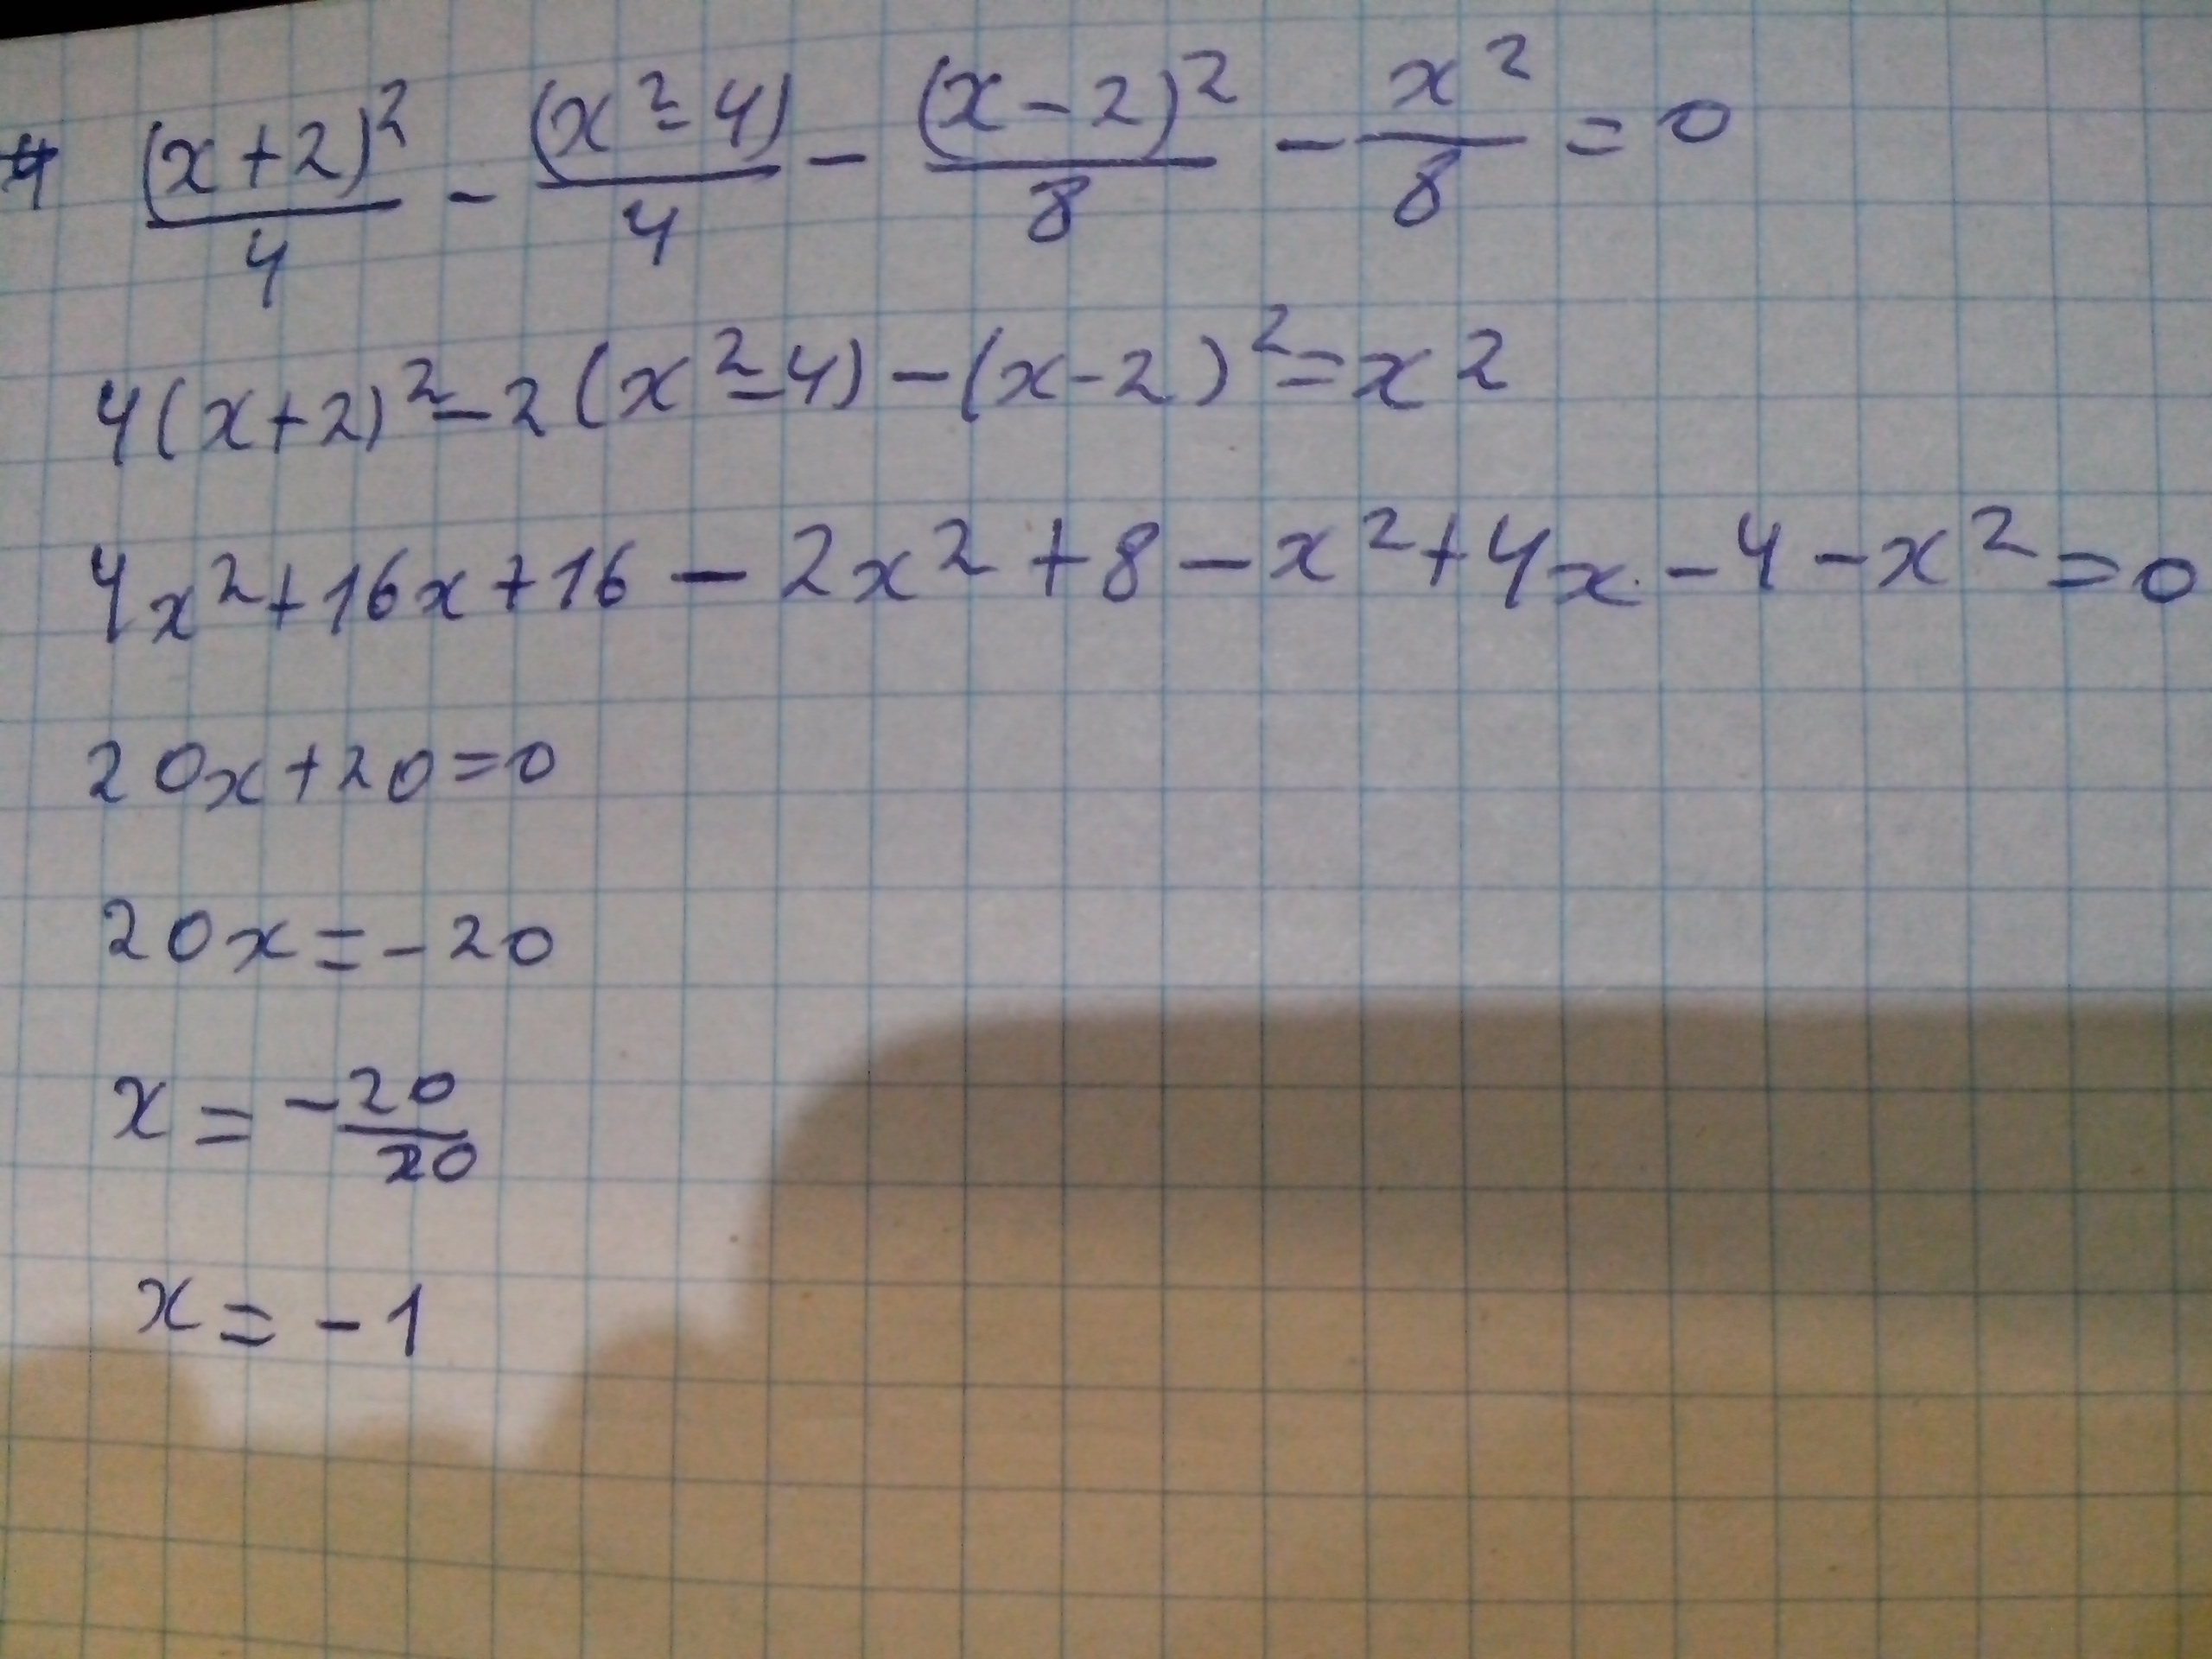 4 (x+2)²/4 - (x²-4)/4 - (x-2)²/8 - x²/8 = 0
4(x+2)²-2(x²-4)-(x-2)²=x2
4x²+16x+16-2x²+8-x²+4x-4-x²=0
20x+20=0
20x=-20
x=-20/20
x=-1